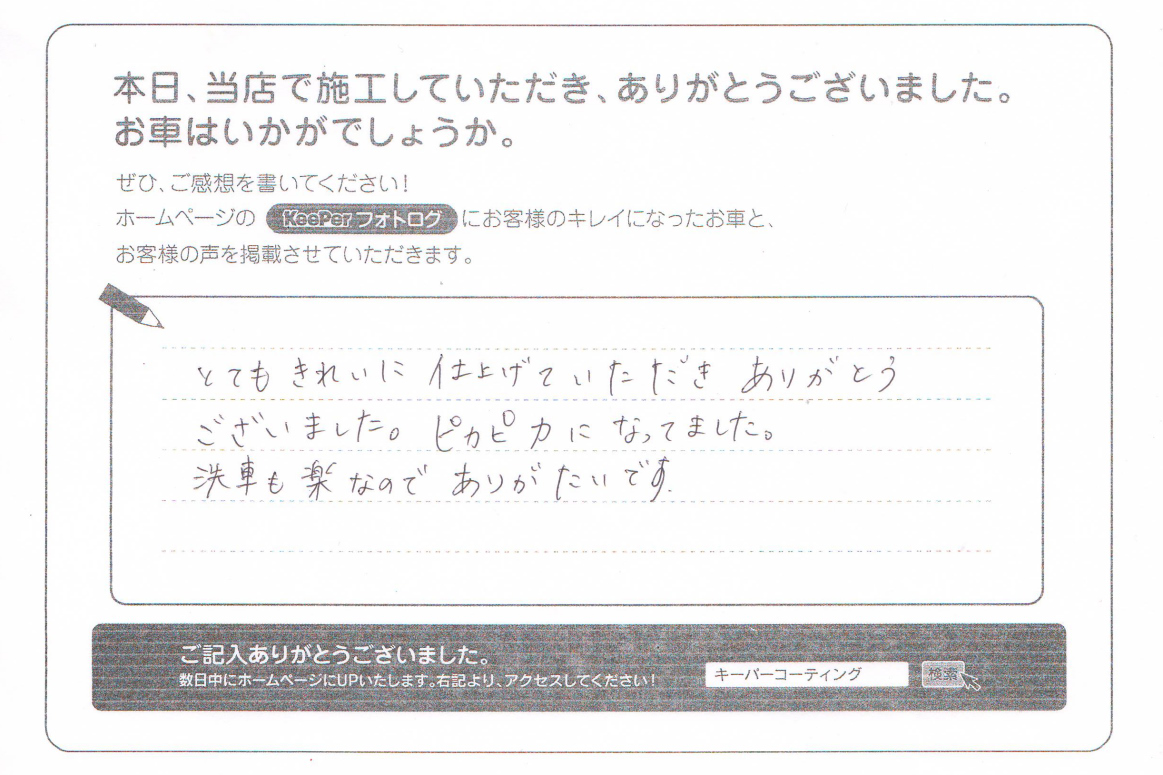 本日、当店で施工していただき、ありがとうございました。
お車はいかがでしょうか。
ぜひ、ご感想を書いてください!
ホームページの KeePer フォトログ にお客様のキレイになったお車と、
お客様の声を掲載させていただきます。
とてもきれいに 仕上げていただき ありがとう
ございました。 ピカピカに なってました。
洗車も楽なので ありがたいです.
ご記入ありがとうございました。
数日中にホームページにUPいたします。右記より、アクセスしてください!
キーパーコーティング 検索